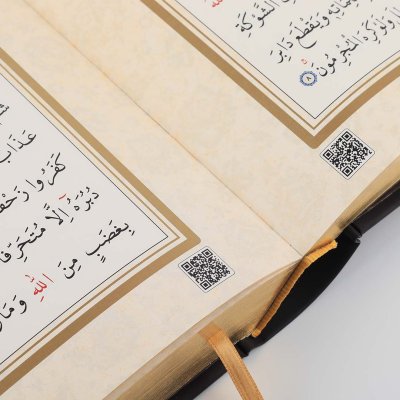 الشَّوْكَةِ
وَيَقْطَعَ دَابِرَ
وَلَوْ كَرِهَ الْمُجْرِمُونَ ٨
عَذَابَ
كَفَرُوا زَحْفًا
دُبُرَهُ إِلَّا مُتَحَرِّفًا
بِغَضَبٍ مِنَ اللّٰهِ وَمَأْ